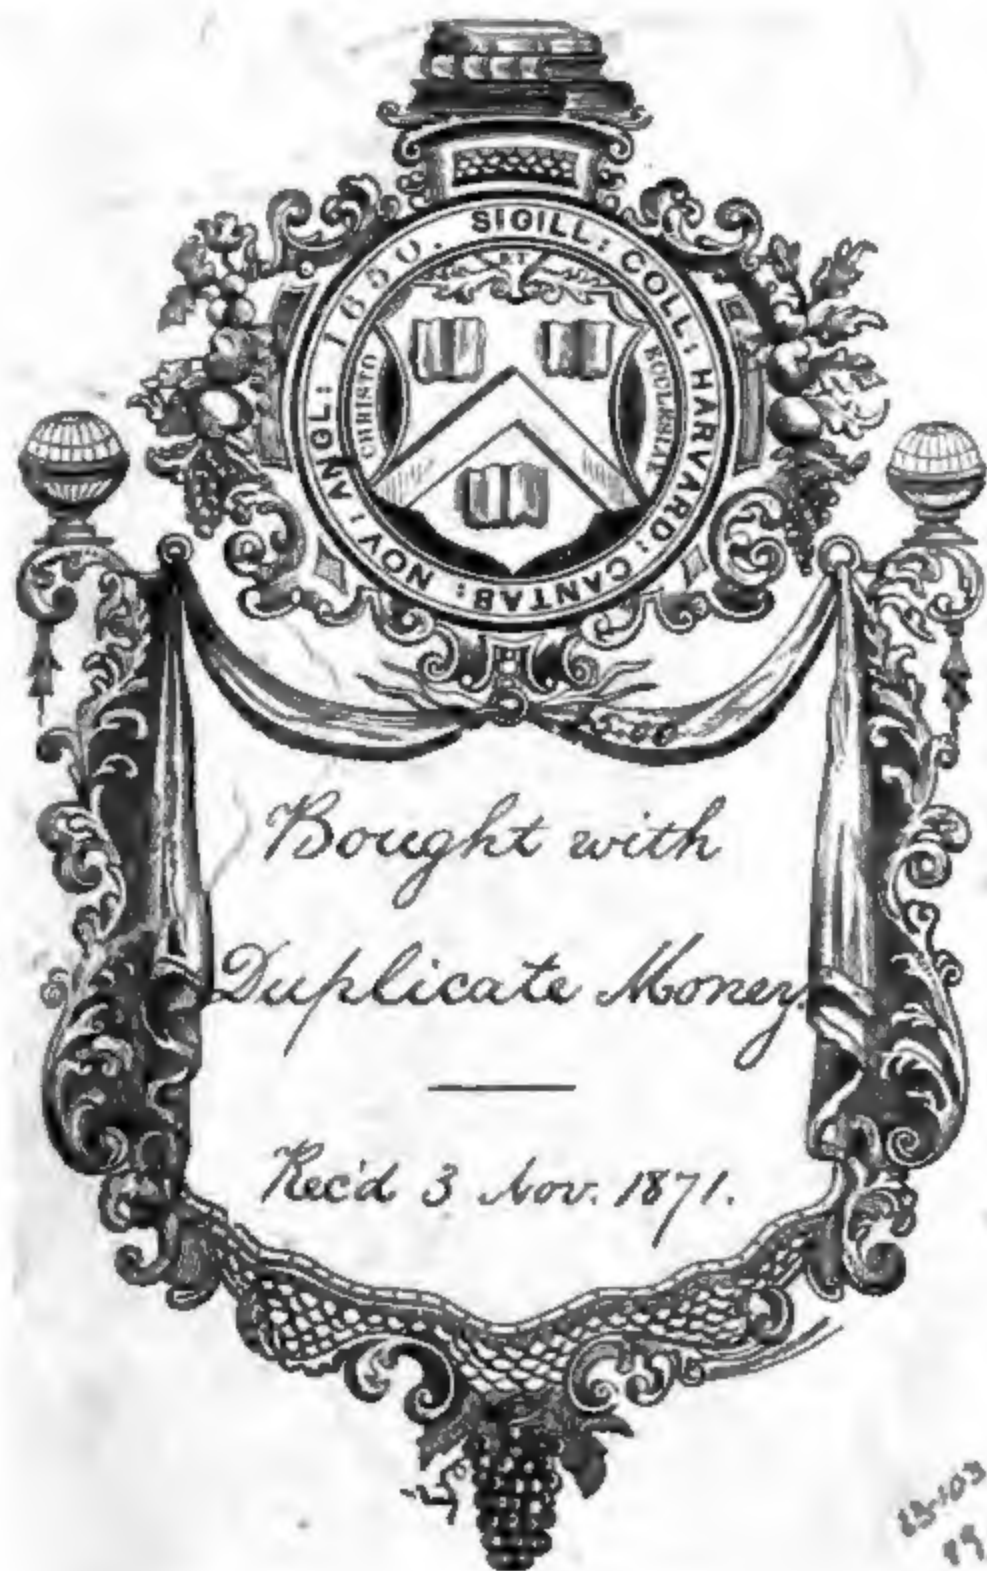 SIGILL: COLL: HARVARD: CANTAB: NOV: ANGL: 1650.
CHRISTO
ET
ECCLESIAE
Bought with
Duplicate Money.
Rec'd 3 Nov. 1871.